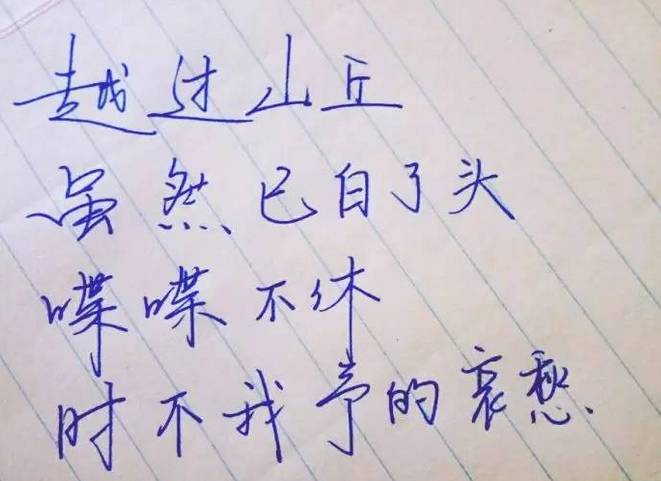 越过山丘
虽然已白了头
喋喋不休
时不我予的哀愁